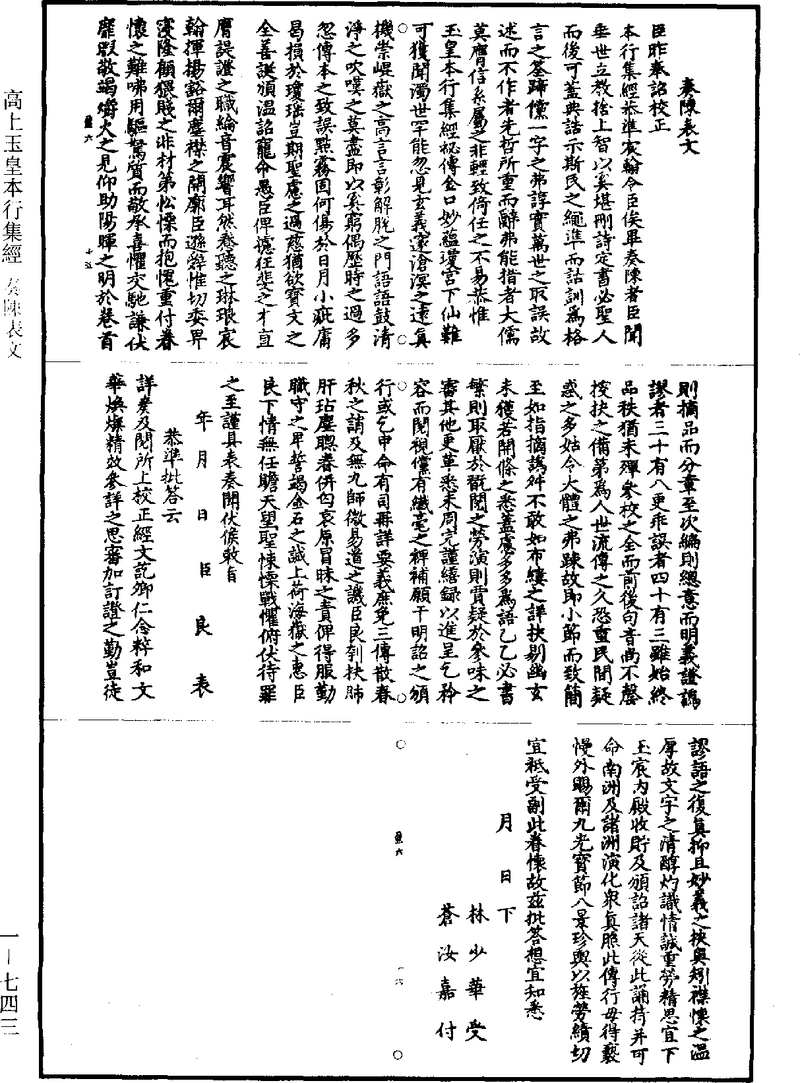 奏陳表文
臣昨奉詔校正
本行集經恭準宸翰令臣俟畢奏陳者臣聞
垂世立教捨上智以奚堪刪詩定書必聖人
而後可蓋典誥示斯民之繩準而詁訓為格
言之筌蹄儻一字之弗諄實萬世之取誤故
述而不作者先哲所重而辭弗能措者大儒
莫膺信系屬之非輕致倚任之不易恭惟
玉皇本行集經祕傳金口妙蘊瓊宮下仙難
可獲聞濁世罕能忽見玄義邃滄溟之遠真
機崇崐嶽之高言言彰解脫之門語語鼓清
淨之吹嘆之莫盡即以奚窮偶歷時之過多
忽傳本之致誤點霧固何傷於日月小疵庸
曷損於瓊瑤豈期聖慮之過慈猶欲寶文之
全善誕頒溫詔寵命愚臣俾摅狂斐之才亘
膺諟證之職綸音震響耳然眷聽之琳琅宸
翰揮揚豁爾塵襟之開廓臣遜辭惟切委畀
寖隆顧猥賤之非材第忪慄而抱愧重付眷
懷之難咈用驅駑質而敬承喜懼交馳謙伏
靡遐敬竭爝火之見仰助陽暉之明於卷首
則摘品而分章至次編則總意而明義證譌
謬者三十有八更非誤者四十有三雖始終
品秩猶未殫參校之全而前後句音尚不罄
按抉之備第為人世流傳之久恐重民間疑
惑之多姑令大體之弗踈故即小節而致簡
至如指摘譌舛不敢如布縷之詳抉剔幽玄
未獲若開條之悉蓋慮多多為語乙乙必書
繁則取厭於翫閱之勞演則賈疑於參味之
審其他更革悉未周完謹繕錄以進呈乞矜
容而閱視儻有纖毫之裨補願干明詔之頒
行或乞申命有司再詳要義庶免三傳散春
秋之誚及無九師微易道之譏臣良刳扶肺
肝玷塵聰眷併匄哀原冒昧之責俾得服勤
職守之卑誓竭金石之誠上荷海嶽之惠臣
良下情無任瞻天望聖悚慄戰懼俯伏待罪
之至謹具表奏聞伏候敕旨
年月日臣良表
恭準批荅云
詳奏及閱所上校正經文菀卿仁念粹和文
華煥爛精效參詳之思審加訂證之勤豈徒
謬語之復真抑且妙義之挾奧矧襟懷之溫
厚故文字之清醇灼識情誠重勞精思宜下
玉宸內殿收貯及頒詔諸天從此誦持并可
命南洲及諸洲演化眾真賸此傳行毋得褻
慢外賜爾九光寶節八景珍輿以旌勞績切
宜祗受副此眷懷故茲批荅想宜知悉
月日下
林少華受
蒼汝嘉付
高上玉皇本行集經 奏陳表文
一—七四三